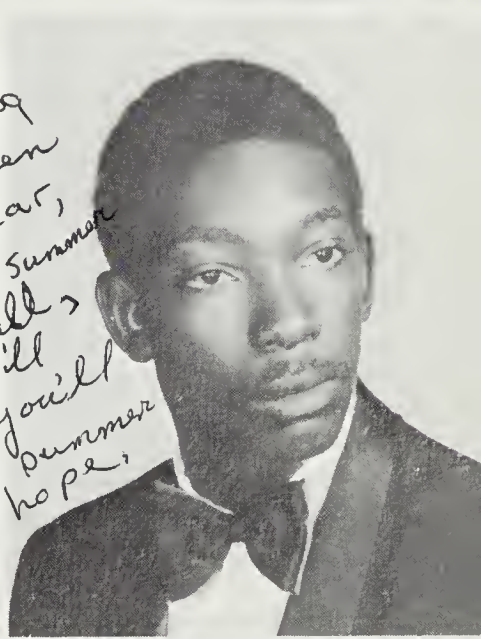 en
ar,
summer
all,
ill
you'll
summer
hope,